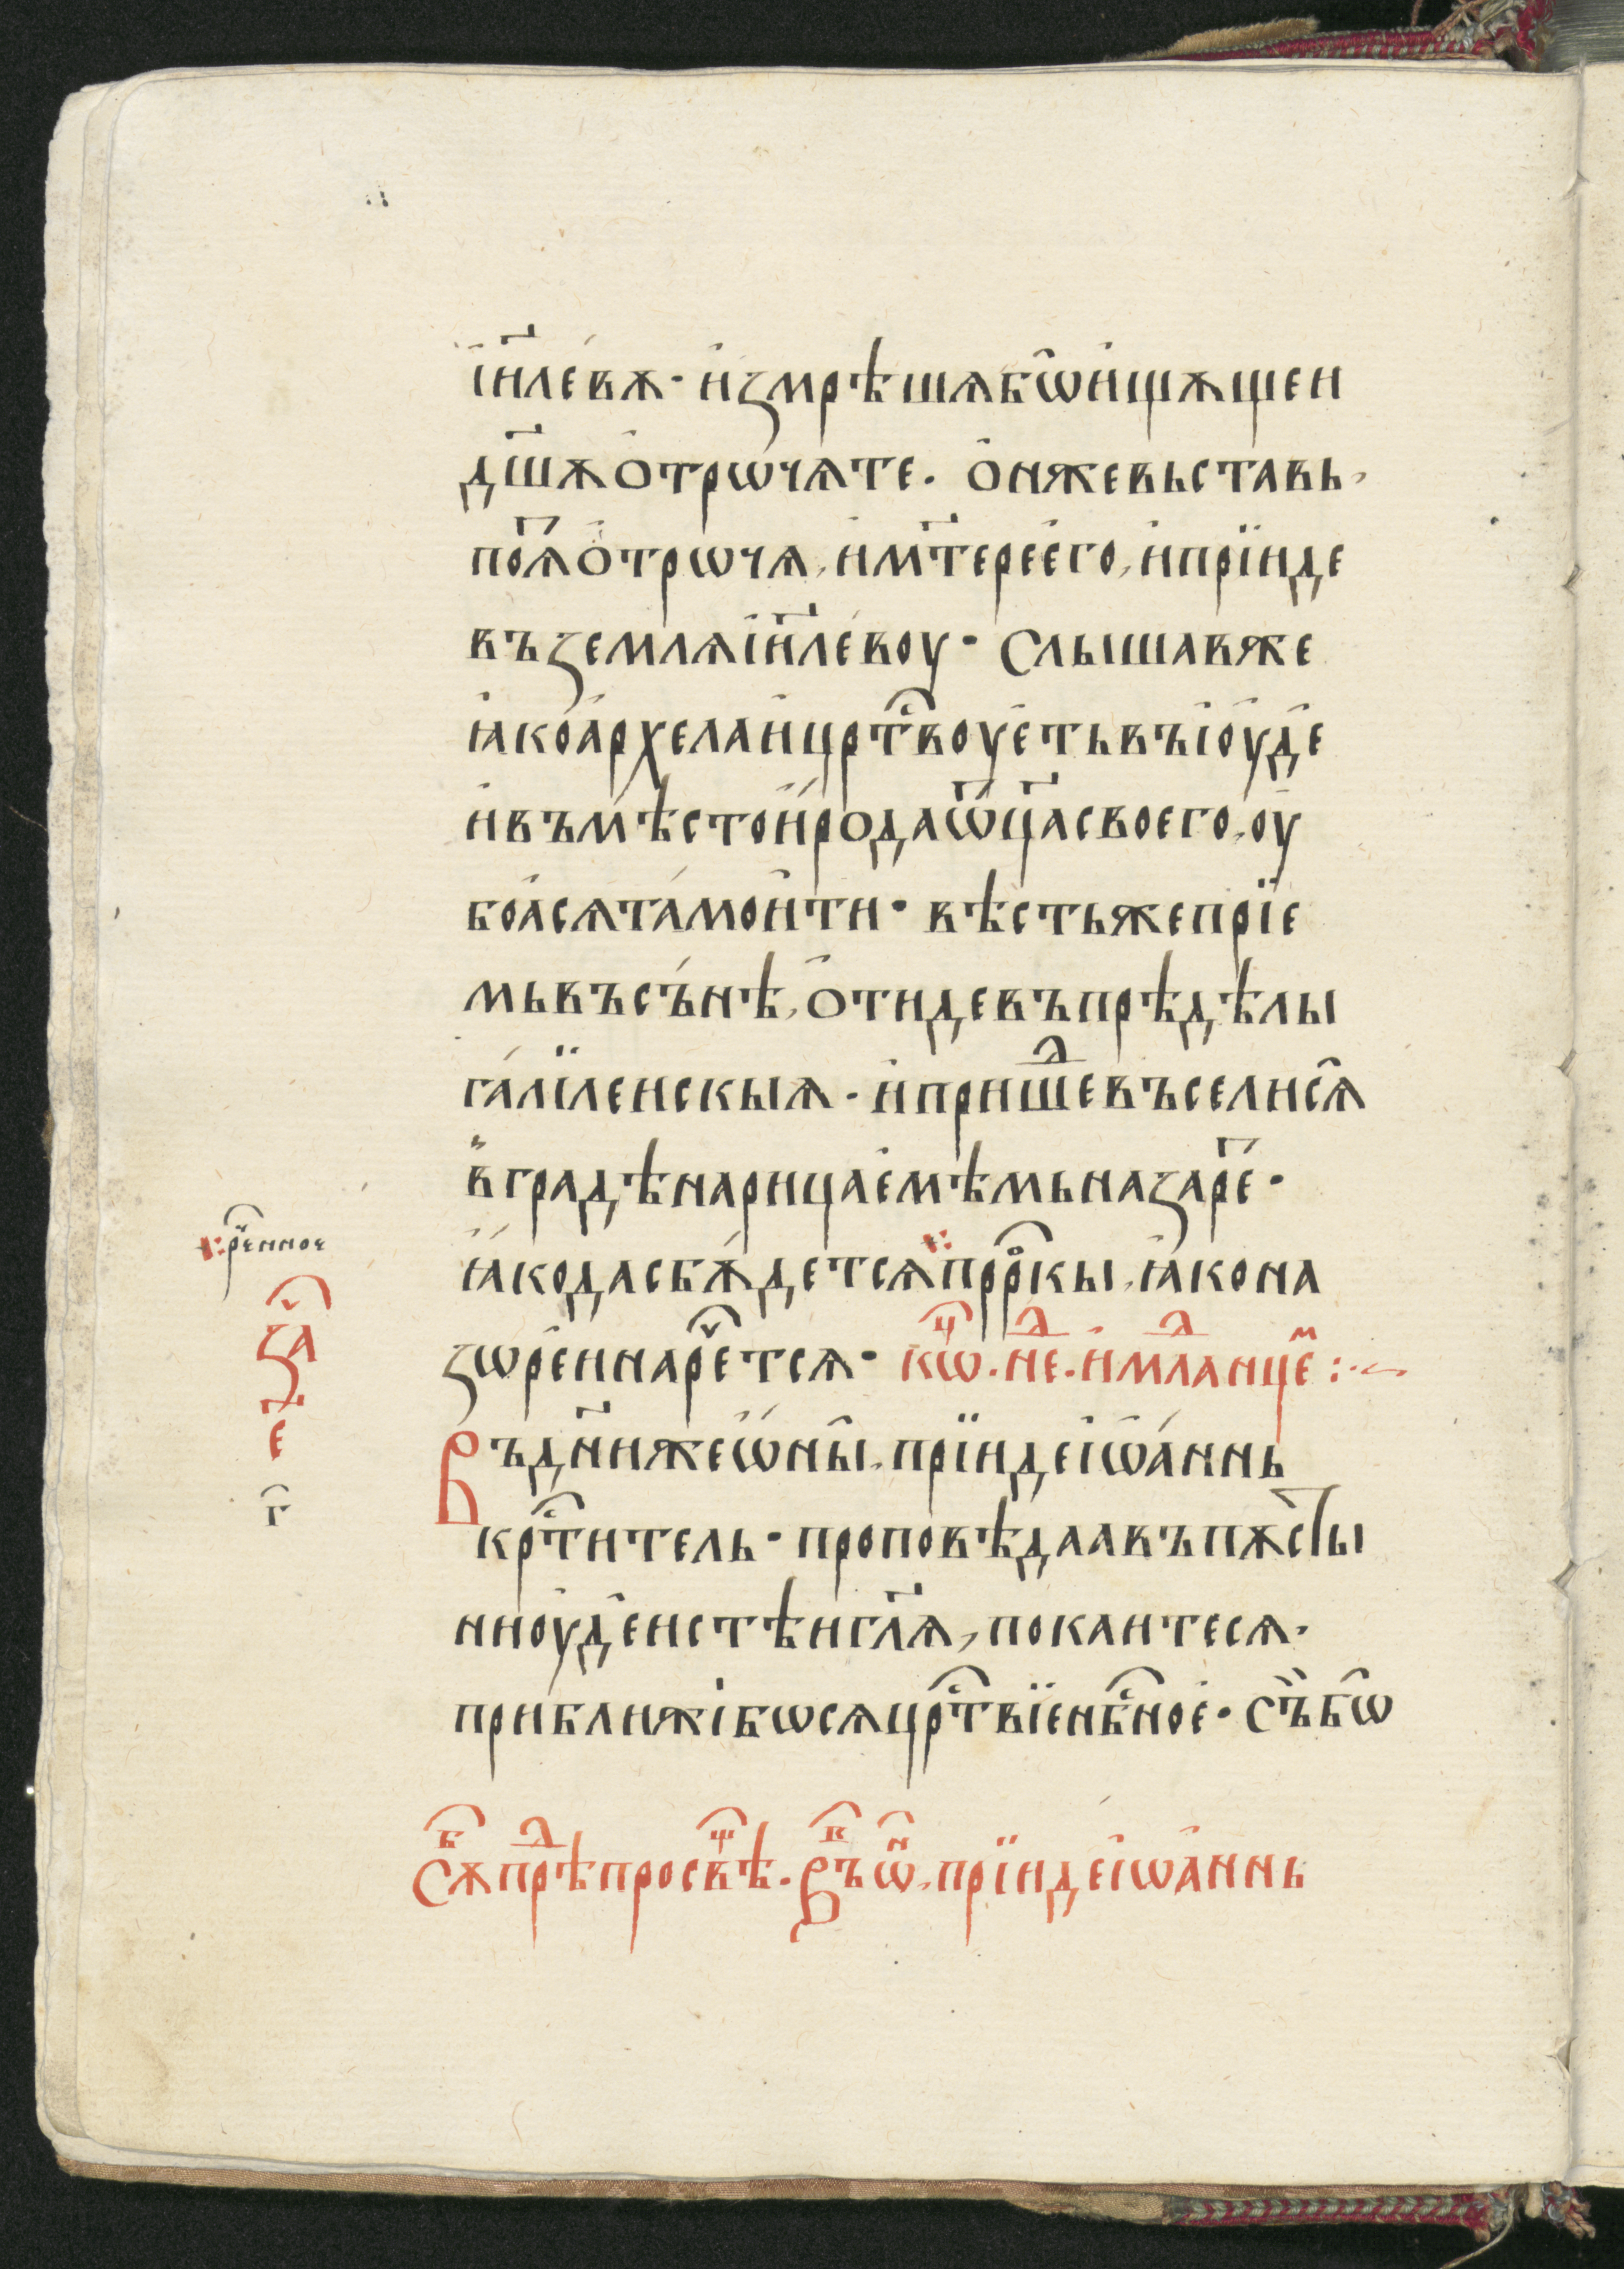 і҆и҃ле́вѫ · и҆змрѣшѧбѡ̑и҆щѫщеи
дш҃ѫо҆трѡ́чѧте . о҆нжевьставь,
поѧ҃о҆трѡчѧ, и҆мт҃ерее҆го, и҆прїиде
въземлѧі҆и҃ле́воу · Слышавже
ꙗ҆коа҆рхелаи҆црⷭ҇твоуе҆тьвъі҆оу҆де҆
и҆въмѣ́стои҆́родаѿц҃асвоего, оу҆
боасѧта́мои҆ти · вѣстьжепрїе
мьвъсъ́нѣ, о҆тидевъпрѣдѣлы
га́лїленскыѧ · и҆пришеⷣвъселисѧ
в̏градѣнарицае҆мѣмьназаре҃ ·
ꙗ҆́кодасбѫ́детсѧпррⷪ҇кы, ꙗ҆кона
зѡре́инарⷱ҇етсѧ · кѡⷰ҇ . неⷣ . и҆млⷣанцеⷨ :·~
Въдн҃ижеѡ҆́ны̑, прїидеі҆ѡ҆а́ннь
крⷭ҇титель · проповѣдаавъпѫсты
ниоу҆де҆истѣигл҃ѧ, покаитесѧ .
приближібѡсѧцрⷭ҇твїенбⷭ҇ное҆ · съ̏бѡ
Сѫⷠ҇прⷣѣпросвⷳ҇ѣ . Въⷡ҇ѡⷩ҇, прїидеі҆ѡа҆ннь
⁘рⷱ҇енное
заⷱ҇
є҃
г҃